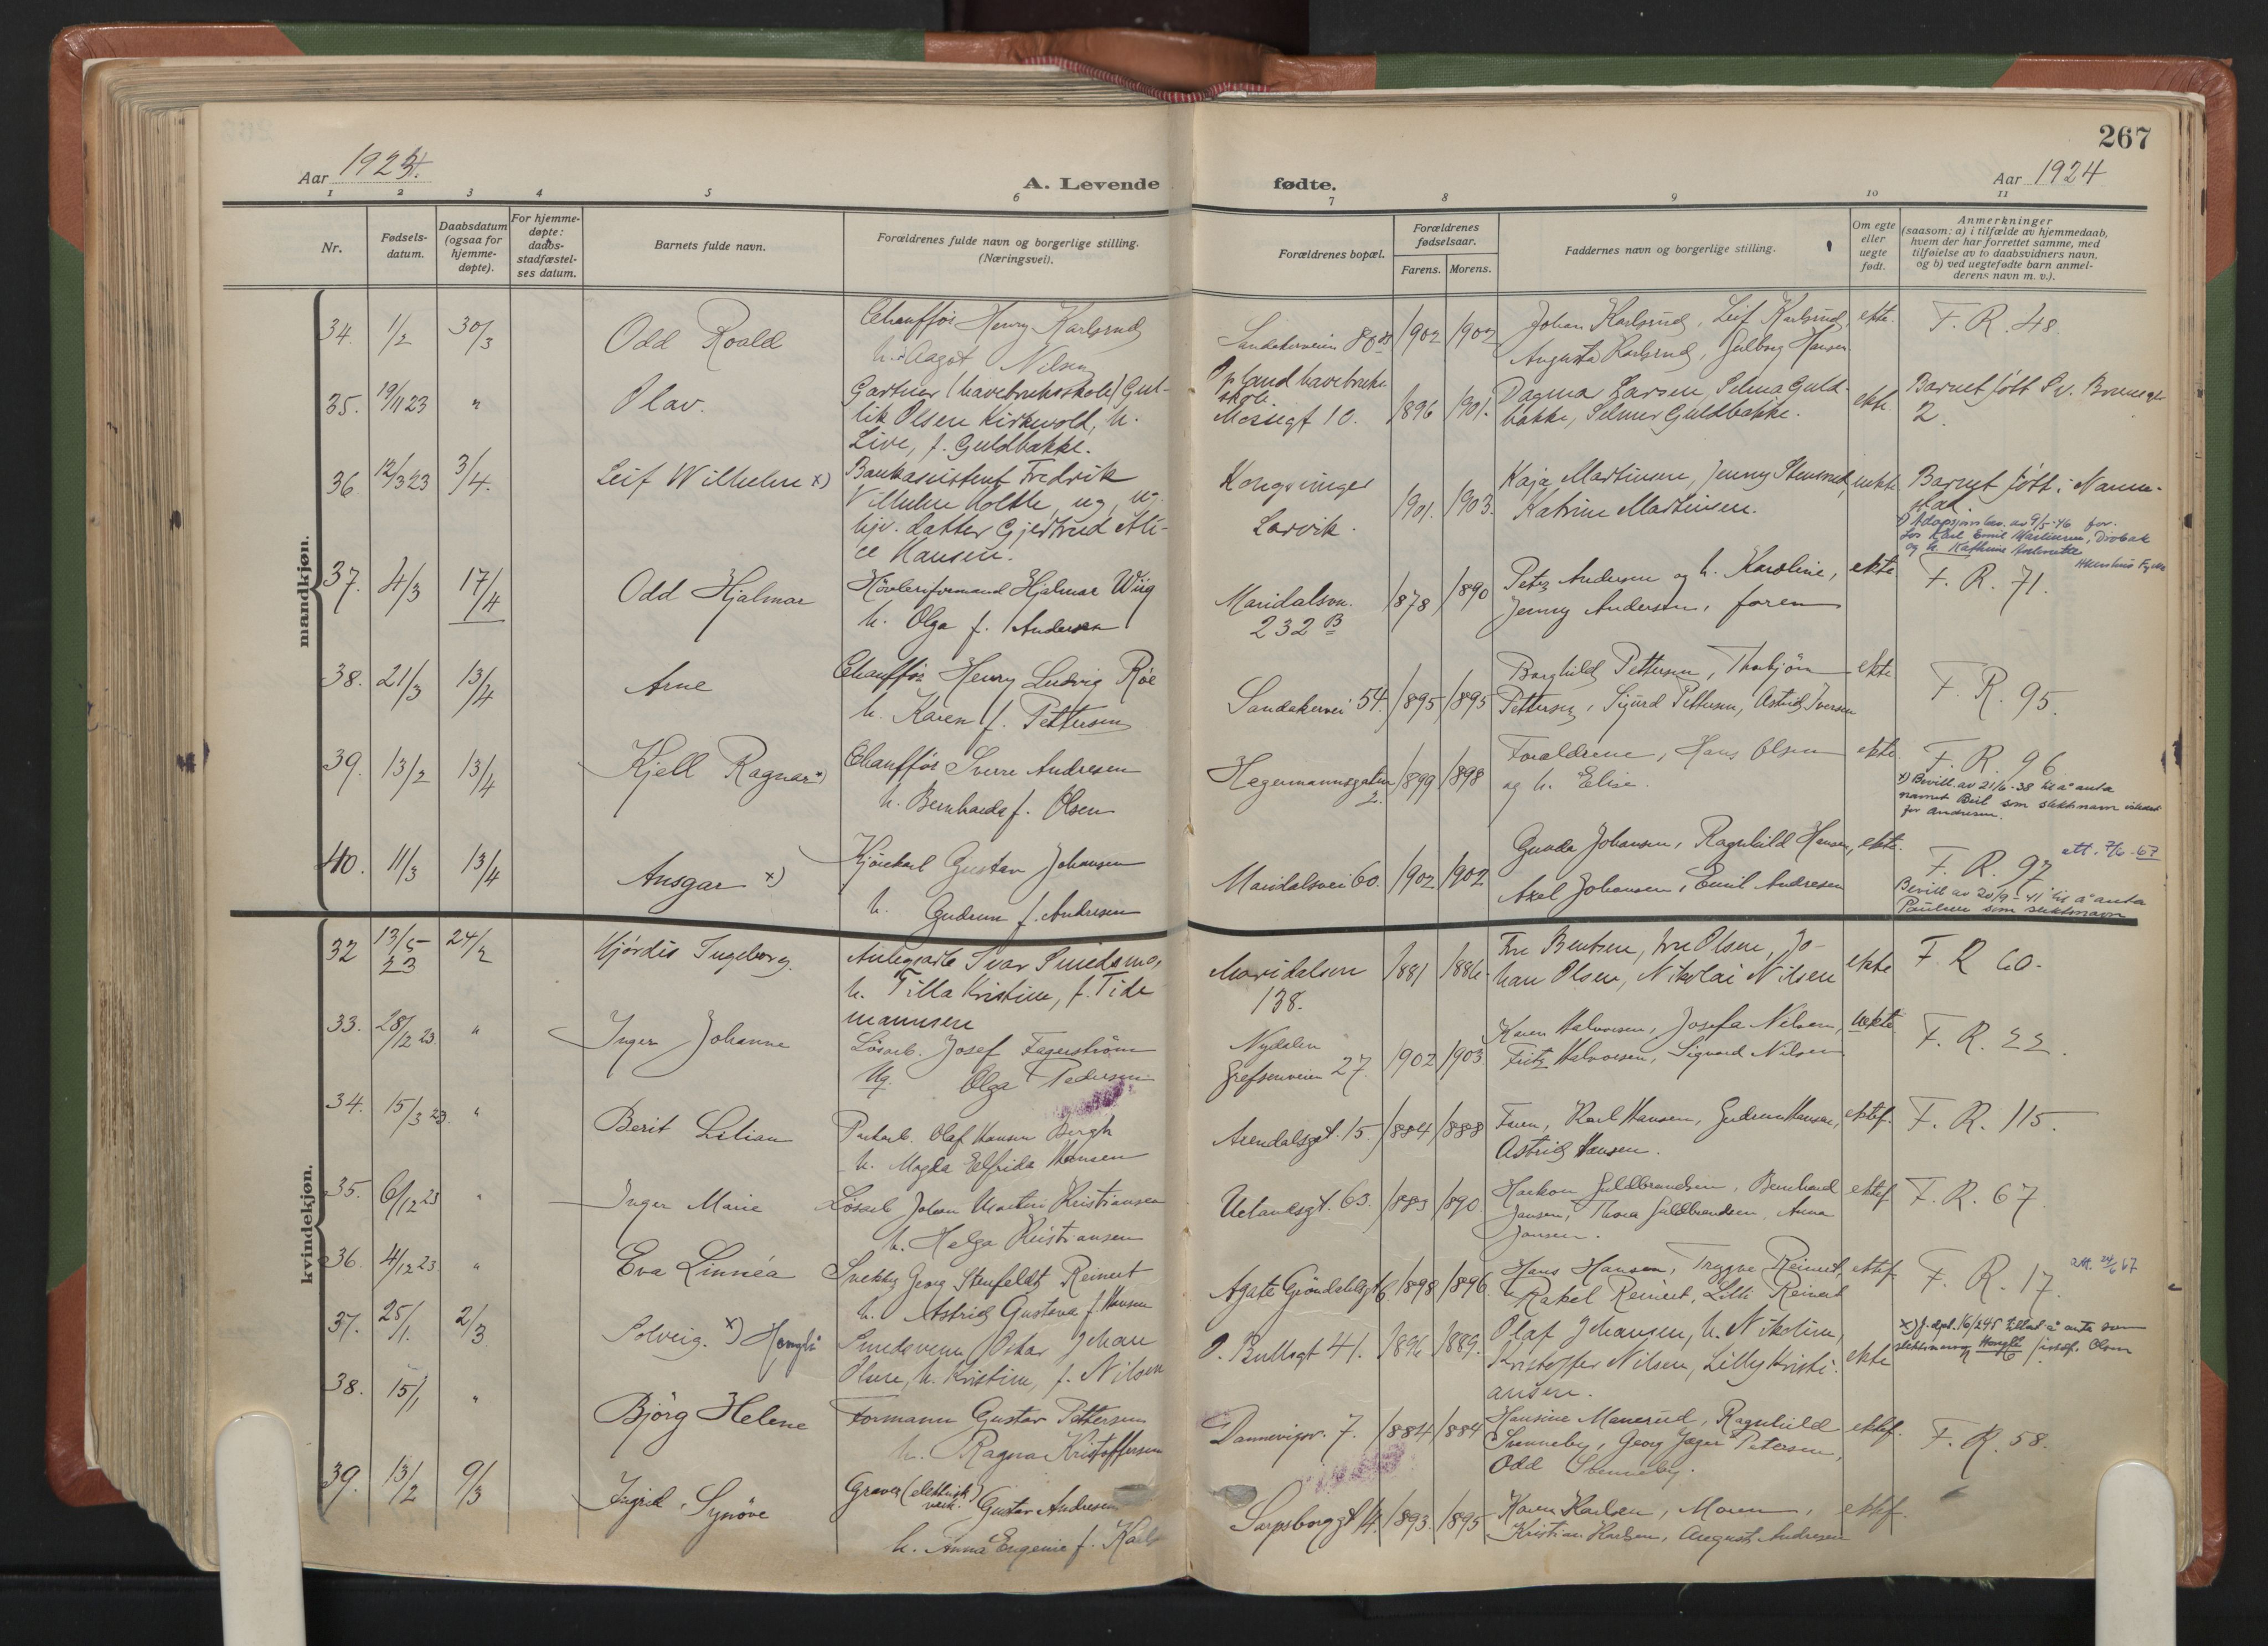 267
Aar 1924.
A. Levende
fødte.
Aar 1924
1 2 3 4 5 6 7 8 9 10 11
Nr.
Fødsels-
datum.
Daabsdatum
(ogsaa for
hjemme-
døpte).
For hjemme-
døpte:
daabs-
stadfæstel-
ses datum.
Barnets fulde navn.
Forældrenes fulde navn og borgerlige stilling.
(Næringsvei).
Forældrenes bopæl.
Forældrenes
fødselsaar.
Farens. Morens.
Faddernes navn og borgerlige stilling.
Om egte
eller
uegte
født.
Anmerkninger
(saasom: a) i tilfælde av hjemmedaab,
hvem der har forrettet samme, med
tilføielse av to daabsvidners navn,
og b) ved uegtefødte barn anmel-
derens navn m. v.).
mandkjøn.
34. 1/2 30/3 Odd Roald
Chauffør Henry Karlsrud
h. Aagot Nilsen
Sandakerveien 80 1902 1902
Johan Karlsrud, Leif Karlsrud,
Augusta Karlsrud, Julborg Hansen
ekte. F. R. 48.
35. 19/11 23 " Olav.
Gartner (havebruksskole) Gul-
lik Olsen Kirkevold, h.
Live, f. Guldbakke.
Opland havebruks
skole.
Mossegt 10. 1896 1901.
Dagma Larsen, Selma Guld-
bakke, Selmer Guldbakke.
ekte Barnet født
2.
36 12/3 23 3/4. Leif Wilhelm x)
Bankassistent Fredrik
Vilhelm Holtle, ug, ug.
hjv. datter Gjertrud Ali-
ce Hansen.
Kongsvinger
Larvik. 1901. 1903.
Kaja Martinsen, Jenny Stensrud,
Katrine Martinsen.
uekte Barnet født i
x) Adopsjonsbev. av 9/5-46 for
Karl Emil Martinsen, Drøbak
og h. Kathrine
37. 4/3 17/4 Odd Hjalmar
Høvleriformand Hjalmar Wiig
h. Olga f. Andersen
Maridalsvn.
232 B 1878 1890
Peter Andersen og h. Karoline,
Jenny Andersen, foren
ekte F. R. 71.
38. 21/3 13/4 Arne
Chauffør Henry Ludvig Röe
h. Karen f. Pettersen
Sandakervei 54. 1895 1895
Borghild Pettersen, Thorbjørn
Pettersen, Sigurd Pettersen, Astrid Iversen
ekte F. R. 95.
39. 13/2 13/4 Kjell Ragnar x)
Chauffør Sverre Andresen
h. Bernharda f. Olsen
Hegermannsgaten
2. 1899 1898
Forældrene, Hans Olsen
og h. Elise.
ekte F. R. 96
x) Bevill. av 21/6-38 til å anta
navnet som slektsnavn istedet
for Andresen.
40. 11/3 13/4 Ansgar x)
Kjørekarl Gustav Johansen
h. Gudrun f. Andresen
Maridalsvei 60. 1902 1902
Gunda Johansen, Ragnhild Hansen,
Axel Johansen, Emil Andresen
ekte. F. R. 97 att. 7/6-67
Bevill av 20/9-41 til å anta
Paulsen som slektsnavn
kvindekjøn.
32 13/5 23 24/2 Hjørdis Ingeborg.
Ivar Smedsmo,
h. Tilla Kristine, f. Tide
mannsen
Maridalsvn
138. 1881 1886.
Fru Bentsen, fru Olsen, Jo-
han Olsen, Nikolai Nilsen
ekte F. R 60.
33. 28/12 23 " Inger Johanne
Løsarb. Josef Fagerstrøm
Ug. Olga Pedersen
Nydalen
Grefsenveien 27. 1902 1903
Karen Halvorsen, Josefa Nilsen,
Fritz Halvorsen, Sigvard Nilsen
uekte F. R. 22.
34. 15/3 23. " Berit Lilian
Olaf Hansen Bergh
h. Magda Elfrida Hansen
Arendalsgt. 15. 1884 1888
Faren, Karl Hansen, Gudrun Hansen,
Astrid Hansen.
ektef. F. R. 115.
35. 6/12 23 " Inger Marie
Løsarb Johan Martin Kristiansen
h. Helga Kristiansen
Uelandsgt. 63. 1889 1890.
Haakon Guldbrandsen, Bernhard
Jansen, Thora Guldbrandsen, Anna
Jansen.
ektef F. R. 67
36. 4/12 23. " Eva Linnéa
Georg Stenfeldt Reinert
h. Astrid Gustava f. Hansen
Agate Grøndahlsgt 6. 1898 1896.
Hans Hansen, Trygve Reinert,
Rakel Reinert, Lilli Reinert
ektef. F. R. 17. att. 24/6 67
37. 25/1. 2/3 Solveig. x) Hengli
Smedsvenn Oskar Johan
Olsen, h. Kristine, f. Nilsen
O. Bullsgt 41. 1896. 1889.
Olaf Johansen, h. Nikoline,
Kristoffer Nilsen, Lilly Kristi-
ansen.
ekte x) J. dpt. 16/2 45 tillat å anta som
slektsnavn Hengli istedf. Olsen
38. 15/1 " Bjørg Helene
Formann Gustav Pettersen
h. Ragna Kristoffersen
Dannevigsv. 7. 1884 1884
Hansine Manerud, Ragnhild
Sunneby, Georg Jæger Petersen,
Odd Sunneby.
ektef. F. R. 58.
39. 13/2 9/3 Ingrid Synøve
Graver (elektrisk
verk.) Gustav Andresen
h. Anna Eugenie f. Karls
Sarpsborggt 14. 1893. 1895
Karen Karlsen, Moren,
Kristian Karlsen, August Andresen
ektef.